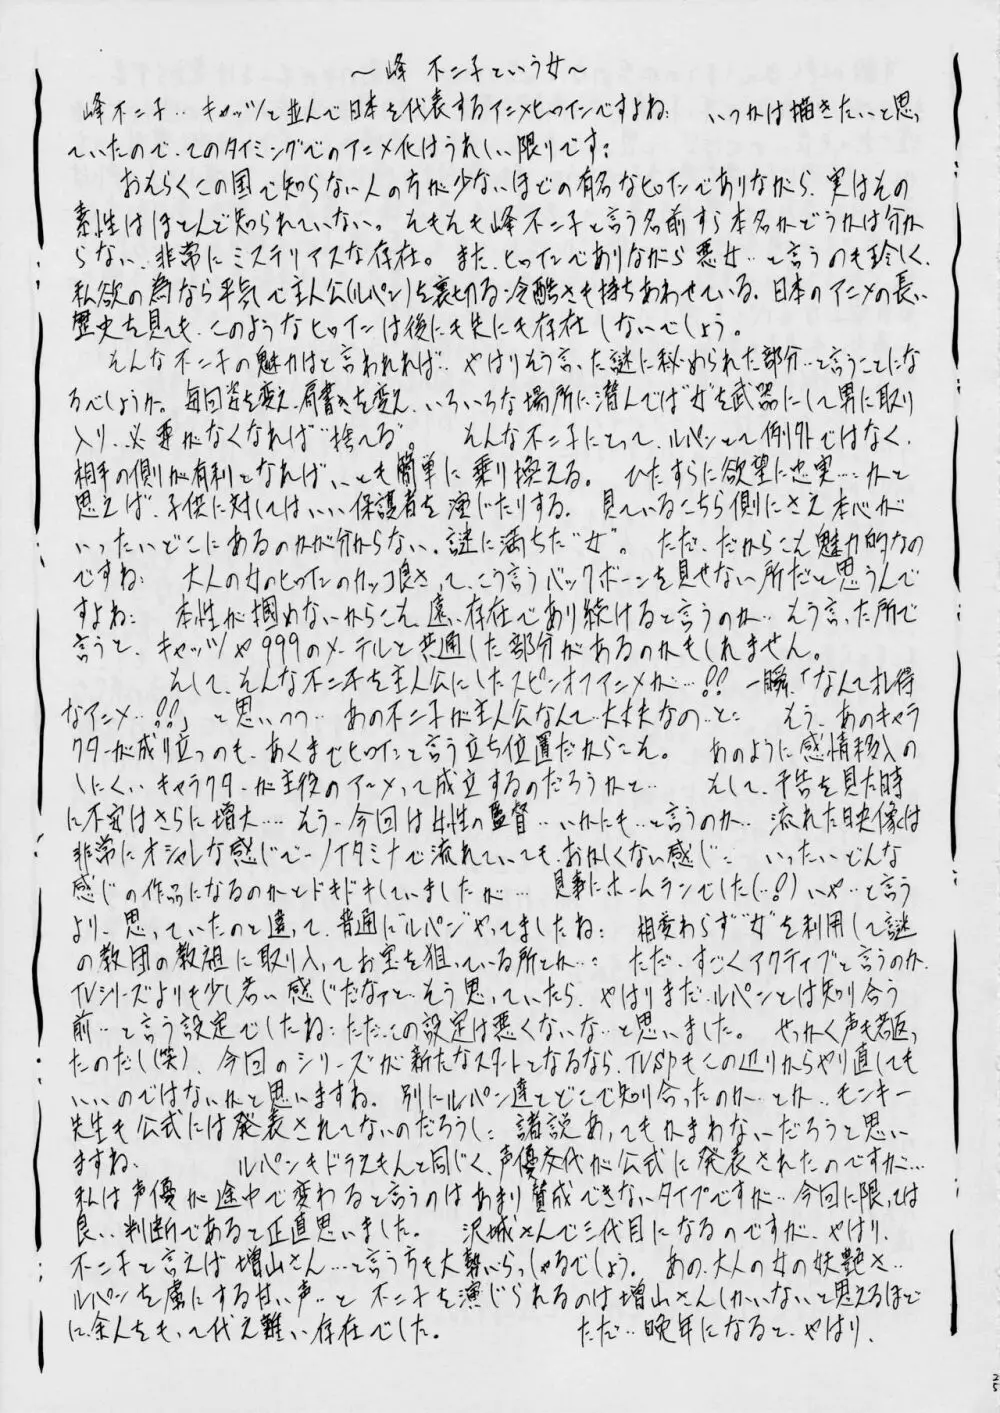 ～峰 不二子という女～
峰不二子‥キャッツと並んで日本を代表するアニメヒロインですよね: いつかは描きたいと思っ
ていたので、このタイミングでのアニメ化はうれしい限りです:
おそらくこの国で知らない人の方が少ないほどの有名なヒロインでありながら、実はその
素性はほとんど知られていない。そもそも峰不二子と言う名前すら本名かどうかは分か
らない、非常にミステリアスな存在。また、ヒロインでありながら悪女‥と言うのも珍しく、
私欲の為なら平気で主人公(ルパン)を裏切る冷酷さも持ちあわせている。日本のアニメの長い
歴史を見ても、このようなヒロインは後にも先にも存在しないでしょう。
そんな不二子の魅力はと言われれば‥やはりそう言った謎に秘められた部分‥と言うことにな
るでしょうか。毎回姿を変え、肩書きを変え、いろいろな場所に潜んでは“女”を武器にして男に取り
入り、必要がなくなれば“捨てる”。 そんな不二子にとって、ルパンとて例外ではなく、
相手の側が有利となれば、いとも簡単に乗り換える。 ひたすらに欲望に忠実…かと
思えば、子供に対してはいい保護者を演じたりする。見ているこちら側にさえ本心が
いったいどこにあるのかが分からない、謎に満ちた“女”。 ただ、だからこそ魅力的なの
ですね: 大人の女のヒロインのカッコ良さって、こう言うバックボーンを見せない所だと思うんで
すよね: 本性が掴めないからこそ遠い存在であり続けると言うのか‥そう言った所で
言うと、キャッツや999のメーテルと共通した部分があるのかもしれません。
そして、そんな不二子を主人公にしたスピンオフアニメが…!! 一瞬、「なんてお得
なアニメ…!!」と思いつつ‥あの不二子が主人公なんて‥大丈夫なの‥と: そう、あのキャラ
クターが成り立つのも、あくまでヒロインと言う立ち位置だからこそ。 あのように感情移入の
しにくいキャラクターが主役のアニメって成立するのだろうかと‥ そして、予告を見た時
に不安はさらに増大‥‥そう、今回は女性の監督‥いかにも‥と言うのか‥流れた映像は
非常にオシャレな感じで‥ノイタミナで流れていても、おかしくない感じ: いったいどんな
感じの作品になるのかとドキドキしていましたが…見事にホームランでした(…!)いや‥と言う
より、思っていたのと違って、普通に“ルパン”やってましたね: 相変わらず“女”を利用して謎
の教団の教祖に取り入ってお宝を狙っている所とか‥: ただ、すごくアクティブと言うのか、
TVシリーズよりも少し若い感じだなァと‥そう思っていたら、やはりまだ、ルパンとは知り合う
前‥と言う設定でしたね:ただ、この設定は悪くないな‥と思いました。 せっかく声も若返っ
たのだし(笑)、今回のシリーズが新たなスタートとなるなら、TVSPもこの辺りからやり直しても
いいのではないかと思いますね。別にルパン達とどこで知り合ったのか‥とか‥モンキー
先生も公式には発表されてないのだろうし: 諸説あってもかまわないだろうと思い
ますね。 ルパンもドラえもんと同じく、声優交代が公式に発表されたのですが…
私は声優が途中で変わると言うのはあまり賛成できないタイプですが‥今回に限っては
良い判断であると正直思いました。 沢城さんで三代目になるのですが、やはり、
不二子と言えば増山さん…と言う方も大勢いらっしゃるでしょう。 あの、大人の女の妖艶さ‥
ルパンを虜にする甘い声‥と 不二子を演じられるのは増山さんしかいないと思えるほど
に、余人をもって代え難い存在でした。 ただ‥晩年になると、やはり、
25